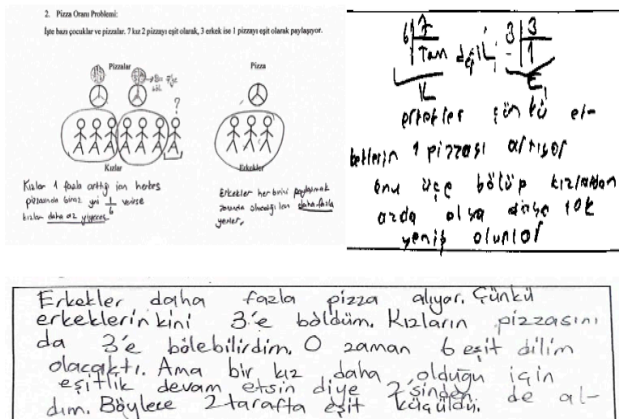 2. Pizza Oranı Problemi:
İşte bazı çocuklar ve pizzalar. 7 kız 2 pizzayı eşit olarak, 3 erkek ise 1 pizzayı eşit olarak paylaşıyor.
Pizzalar
Pizza
?
Kızlar
Erkekler
Kızlar 1 fazla arttığı için herkes
pizzasından biraz yani 1/6 verirse
kızlar daha az yiyecek.
Erkekler her birini paylaşmak
zorunda olmadığı için daha fazla
yerler.
6 7
3 3
Tam değil
1
K
E
erkekler çünkü er-
keklerin 1 pizzası artıyor
onu üçe bölüp kızlardan
azda olsa daha çok
yemiş olurlar
Erkekler daha fazla pizza alıyor. Çünkü
erkeklerinkini 3'e böldüm. Kızların pizzasını
da 3'e bölebilirdim. O zaman 6 eşit dilim
olacaktı. Ama bir kız daha olduğu için
eşitlik devam etsin diye 2'sinden de al-
dım. Böylece 2 tarafta eşit küçüldü.